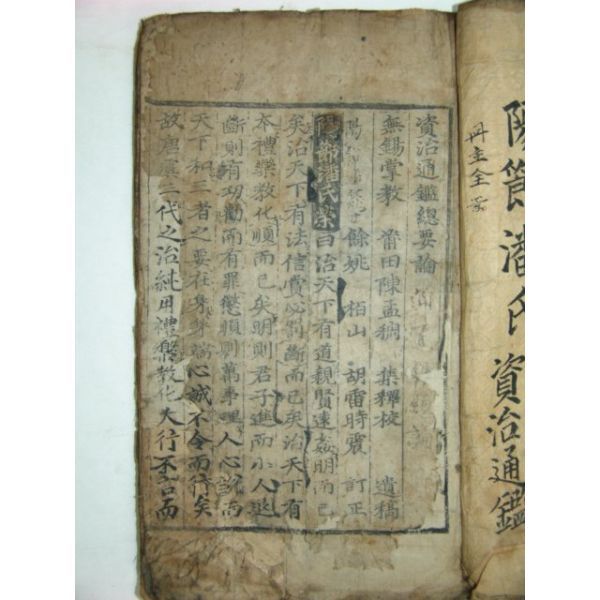 陽節潘氏資治通鑑
冊主全
資治通鑑總要論
無錫學教 莆田陳孟稠 集釋校 遺稿
餘姚 栢山 胡雷時震 訂正
陽節潘氏榮曰治天下有道親賢遠姦明而已
矣治天下有法信賞必罰斷而已矣治天下有
本禮樂教化順而已矣明則君子進而小人退
斷則有功勸而有罪懲順則萬事理人心說而
天下和三者之要在身身端心誠不令而行矣
故唐虞三代之治純用禮樂教化大行不言而